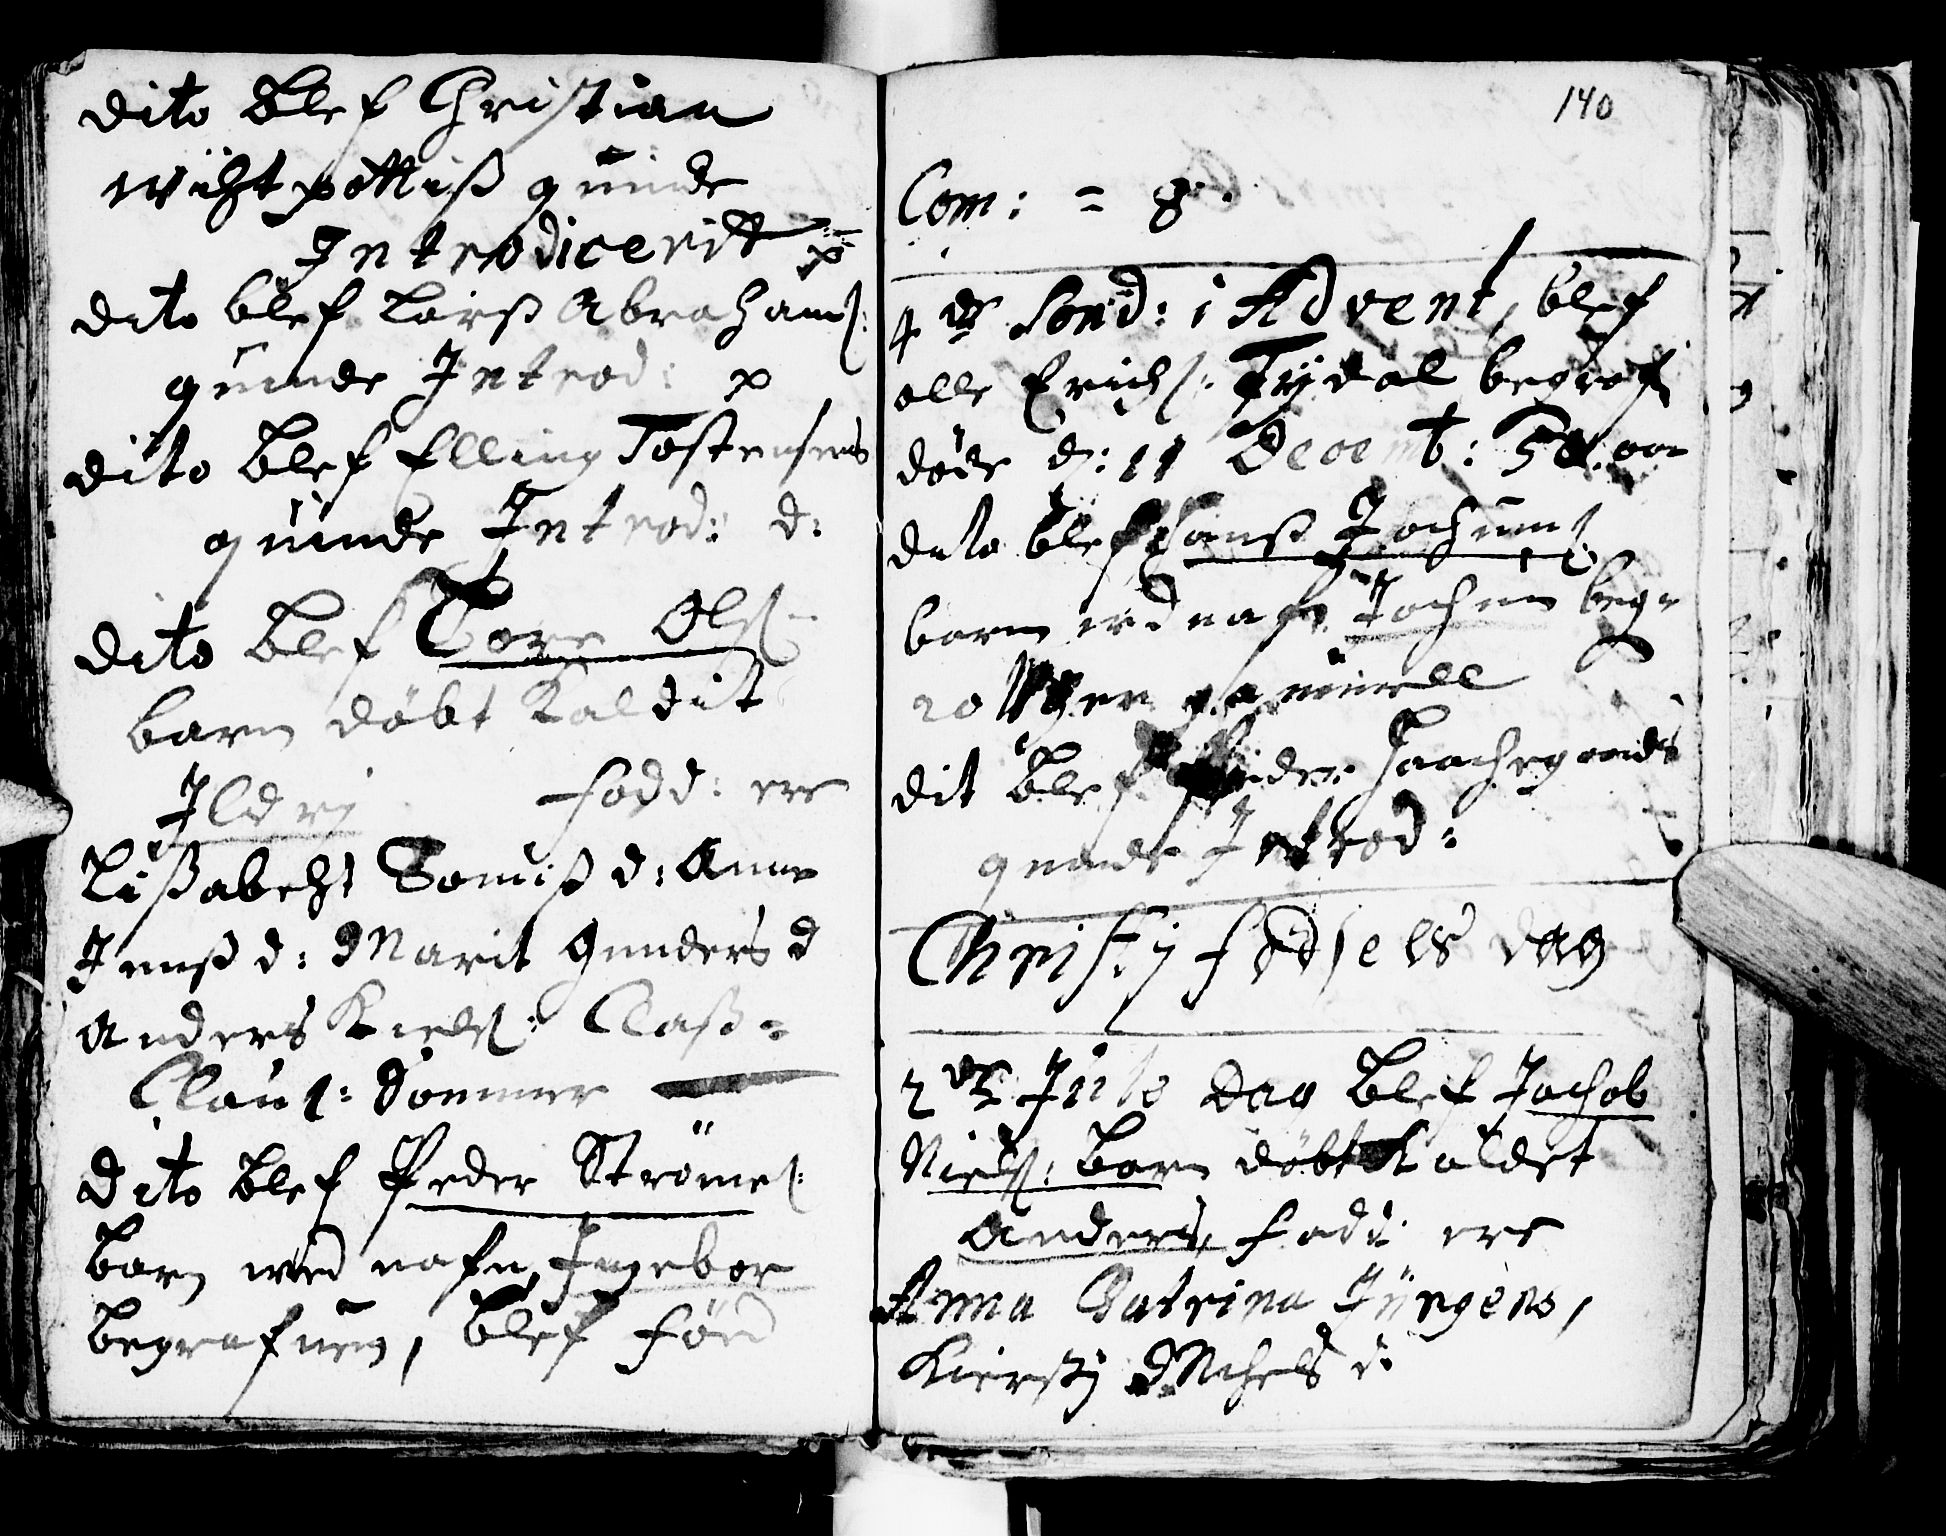 dito blef Christian
quinde
Introdicerit
dito blef Larß Abrahams:
quinde Introd:
dito blef Elling Tostensens
quinde Introd: d:
dito blef Tore Ols:
barn døbt Kaldit
Ildrj fadd: ere
Lißabeht d: Anne
Jenß d: Marit Gunders d
Anders Kiels: Claß
Clauß: Sommer
dito blef Peder Strömes:
barn wed nafn Ingebor
begrafuen, blef
140
Com: = 8
4de Sönd: i Advent, blef
olle Erichs: Tydal begrafu
döde d: 11 Decemb: 58 aar
dito blef Hanß Jochums:
barn ved nafn Jochum begr
20 Uger gammell
dit blef Peder
quinde Introd:
Christj fødsels dag
2den Jule dag blef Jachob
Niels: barn døbt Kaldet
Anders, fadd: ere
Anna Catrina Jürgens,
Kierstj d: